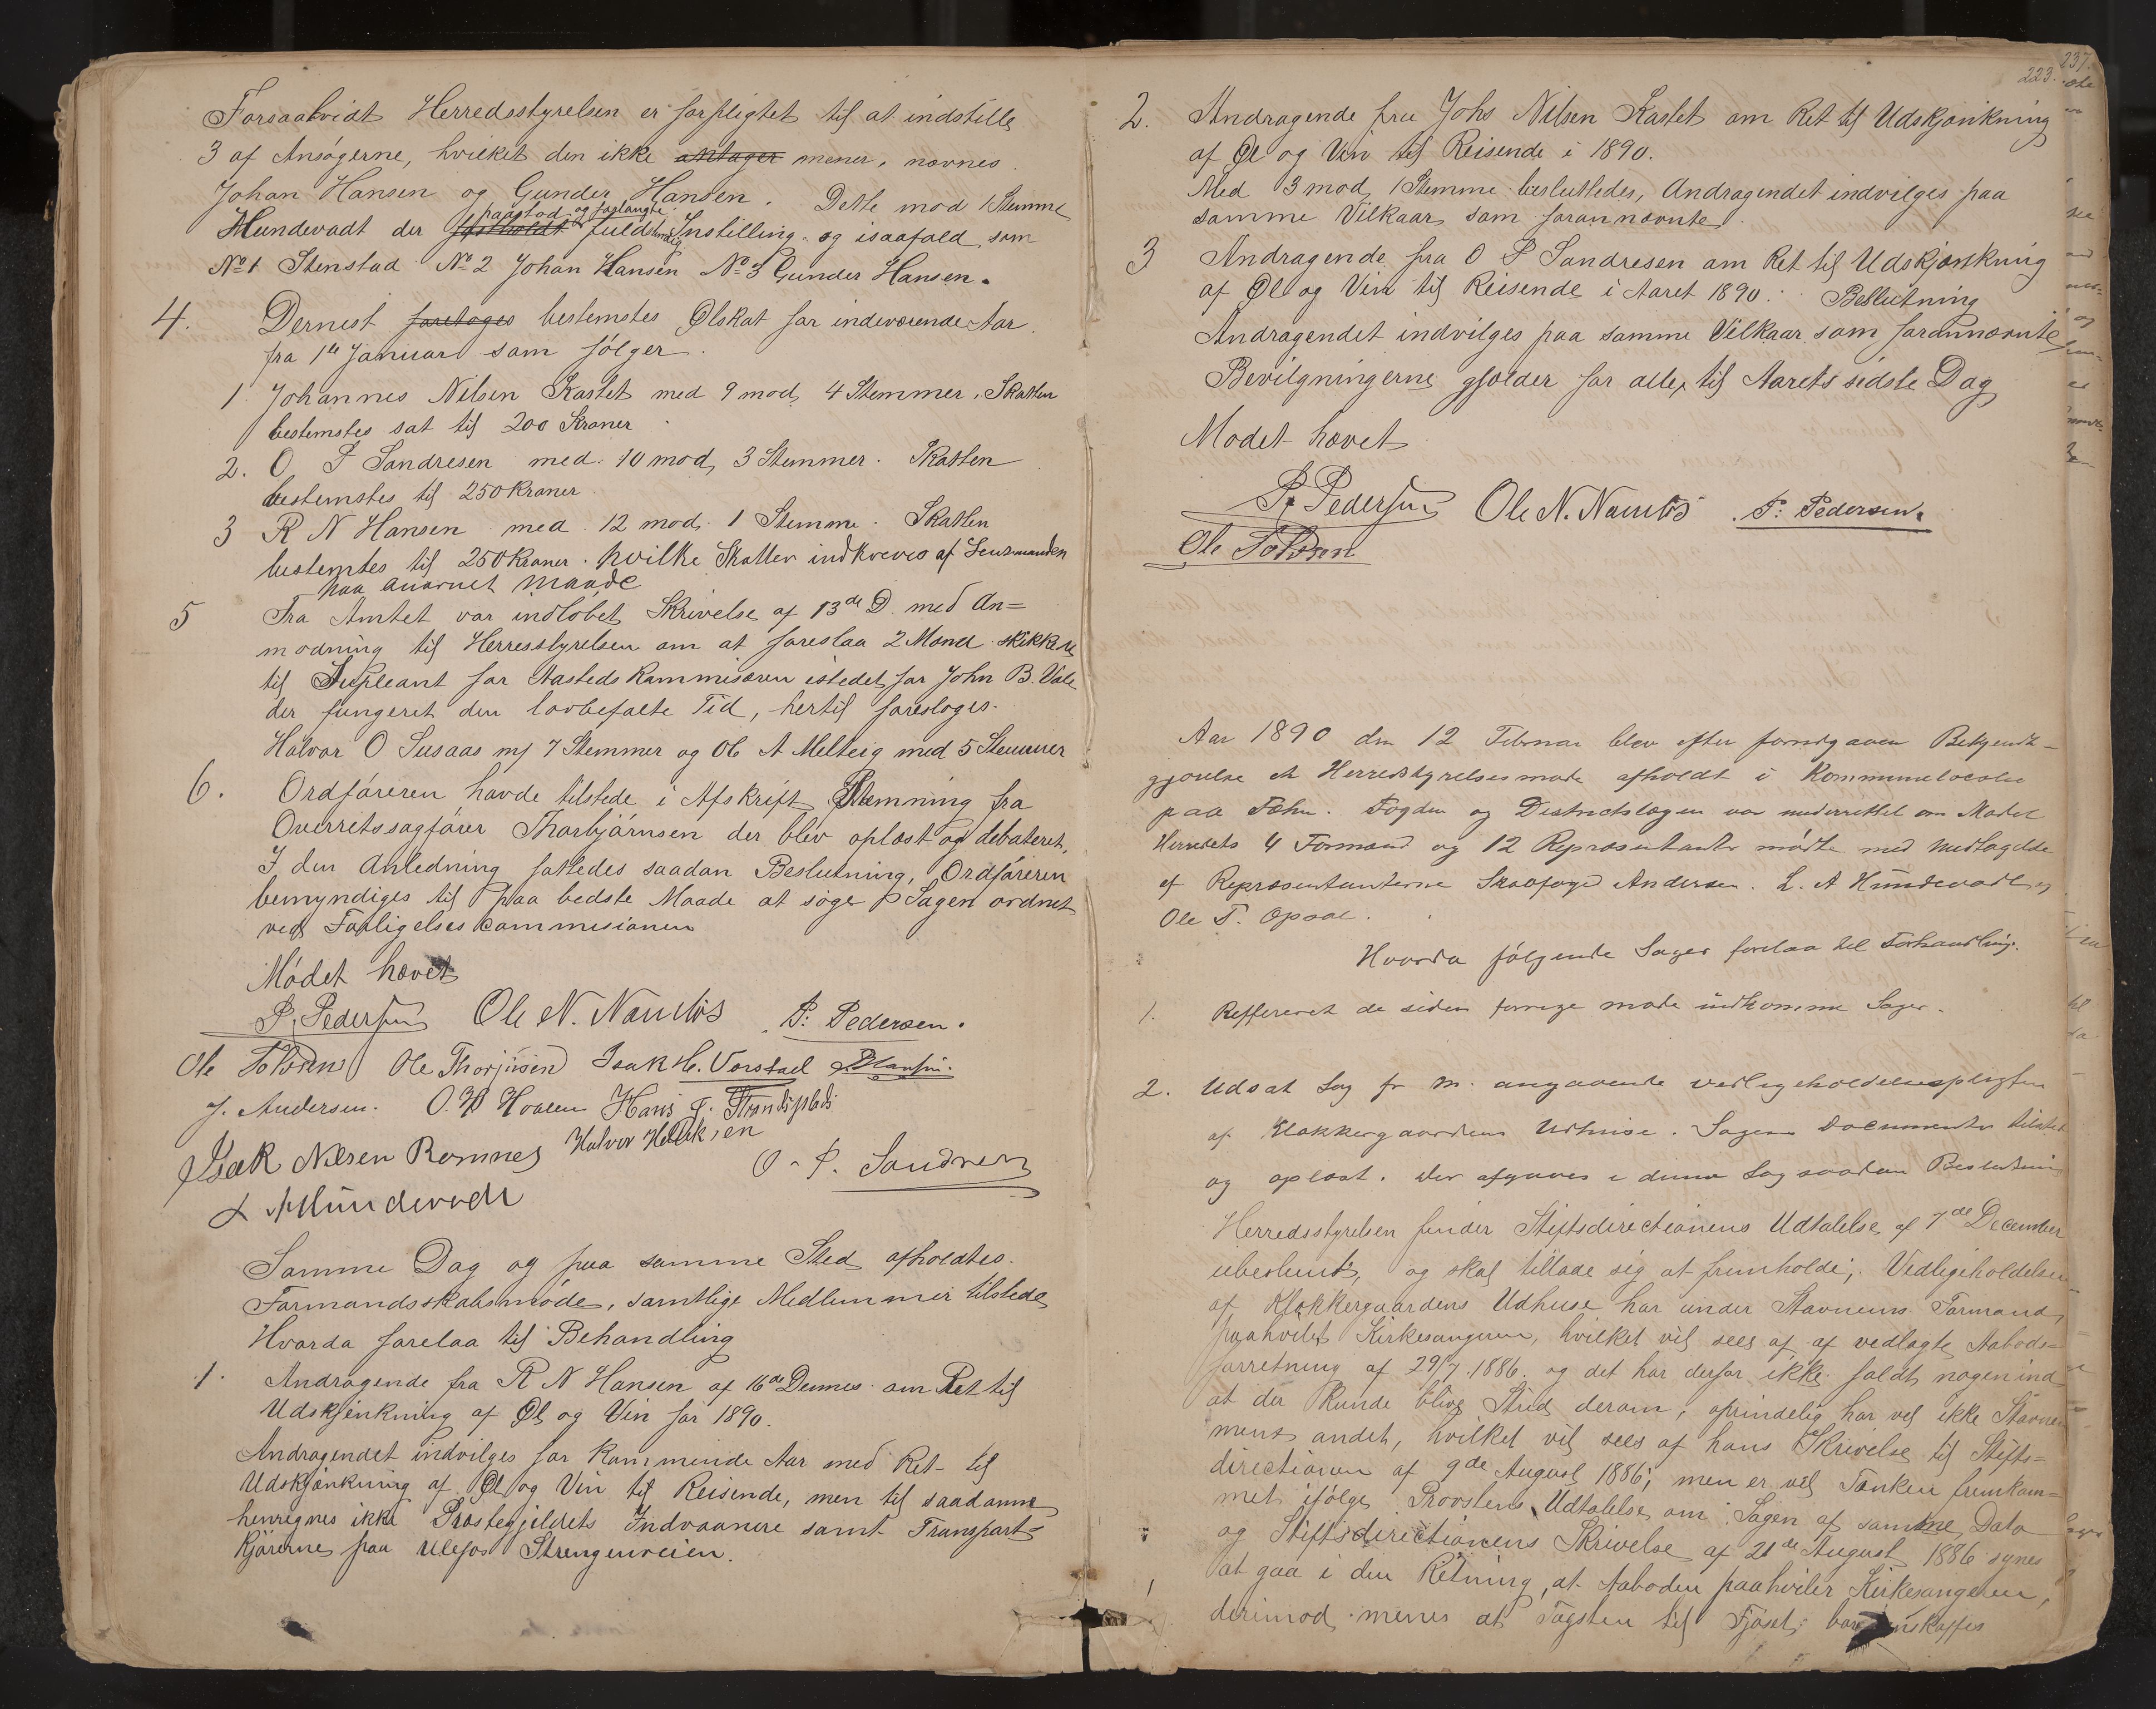 Forsaavidt Herredsstyrelsen er forpligtet til at indstille
3 af Ansøgerne, hvilket den ikke antager mener, nævnes
Johan Hansen og Gunder Hansen. Dette mod 1 Stemme
paastod og forlangte
Hundevadt der fastholdt fuldstændig Instilling og isaafald som
No 1 Stenstad No 2 Johan Hansen No 3 Gunder Hansen.
4. Dernest foretoges bestemtes Ølskat for indeværende Aar
fra 1te Januar som følger.
1 Johannes Nilsen Kastet med 9 mod 4 Stemmer, Skatten
bestemtes sat til 200 Kroner
2. O P Sandresen med 10 mod 3 Stemmer. Skatten
bestemtes til 250 Kroner
3 R N Hansen med 12 mod 1 Stemme. Skatten
bestemtes til 250 Kroner. hvilke Skatter indkræves af Lensmanden
paa anordnet maade
5 Fra Amtet var indløbet Skrivelse af 13de D. med An=
modning til Herresstyrelsen om at foreslaa 2 Mænd skikkede
til Supleant for Aasteds Kommisæren istedet for John B. Vale
der fungeret den lovbefalte Tid, hertil foresloges.
Halvor O Susaas m/ 7 Stemmer og Ole A Melteig med 5 Stemmer
6. Ordføreren havde tilstede i Afskrift Stemning fra
Overretssagfører Thorbjørnsen der blev oplæst og debateret,
I den Anledning fattedes saadan Beslutning, Ordføreren
bemyndiges til paa bedste Maade at søge Sagen ordnet
ved Forligelses commisionen
Mødet hævet
P. Pedersen Ole N. Namløs P: Pedersen.
Ole Tolvsen Ole Thorjusen Isak H. Vorstad Hansen.
J. Andersen. O. H Hoalen Hans J. Strandsplads
Isak Nilsen Romnes Halvor Henriksen
O. P. Sandresen
L A Hundevadt
Samme Dag og paa samme Sted afholdtes
Formandsskabsmøde, samtlige Medlemmer tilstede
Hvorda forelaa til Behandling
1. Andragende fra R N Hansen af 16de Dennes om Ret til
Udskjenkning af Øl og Vin for 1890.
Andragendet indvilges for kommende Aar med Ret til
Udskjænkning af Øl og Vin til Reisende, men til saadanne
henregnes ikke Præstegjeldets Indvaanere samt Transport=
kjørerne paa Ulefos Strengenveien.
237.
223.
2. Andragende fra Johs Nilsen Kastet om Ret til Udskjænkning
af Øl og Vin til Reisende i 1890.
Med 3 mod 1 Stemme besluttedes, Andragendet indvilges paa
samme Vilkaar som forannævnte.
3 Andragende fra O P Sandresen om Ret til Udskjænkning
af Øl og Vin til Reisende i Aaret 1890. Beslutning
Andragendet indvilges paa samme Vilkaar som forannævnte
Bevilgningerne gjælder for alle til Aarets sidste Dag
Mødet hævet
P. Pedersen Ole N. Namløs P: Pedersen.
Ole Tolvsen
Aar 1890 den 12 Februar blev efter forudgaaen Bekjendt=
gjørelse et Herredstyrelsesmøde afholdt i Kommunelocalet
paa Tæhn. Fogden og Districtslægen var underrettet om Mødet
Herredets 4 Formænd og 12 Repræsentanter mødte med undtagelse
af Repræsentanterne Skovfoged Andersen. L. A Hundevadt og
Ole T. Opsal.
Hvorda følgende Sager forelaa til Forhandling.
1. Reffereret de siden forrige møde indkomne Sager.
2. Udsat Sag fr m. angaaende vedligeholdelsespligten
af Klokkergaardens Udhuse. Sagens Documenter tilstede
og oplæst. Der afgaves i denne Sag saadan Beslutning
Herredsstyrelsen finder Stiftsdirectionens Udtalelse af 7de December
ubestemt, og skal tillade sig at fremholde; Vedligeholdelsen
af Klokkergaardens Udhuse har under Stavnems Formand
paahvilet Kirkesangeren, hvilket vil sees af af vedlagte Aabods=
forretning af 29/7 1886. og det har derfor ikke faldt nogen ind
at der kunde blive Strid derom, oprindelig har vel ikke Stavne
ment andet, hvilket vil sees af hans Skrivelse til Stifts=
directionen af 9de August 1886; men er vel Tanken fremkom=
met ifølge Provstens Udtalelse om Sagen af samme Dato
og Stiftsdirectionens Skrivelse af 21de August 1886 synes
at gaa i den Retning, at Aaboden paahviler Kirkesangeren,
derimod menes at Tagsten til Fjøset bør anskaffes